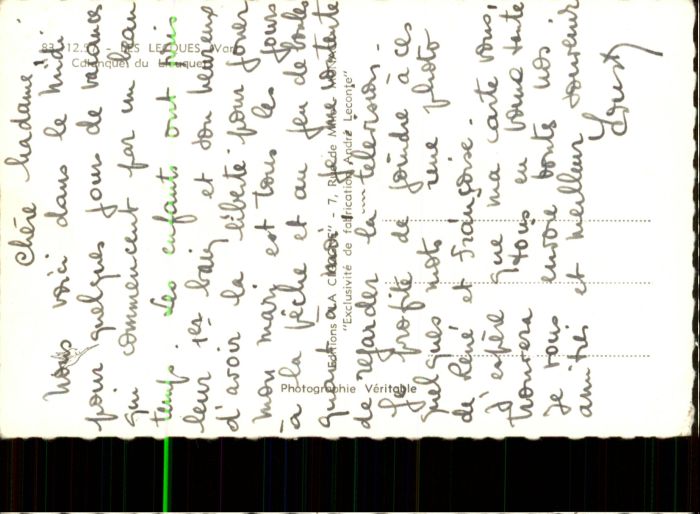 83.12.57 - LES LECQUES (Var)
Calanque du Liouquet
Photographie Véritable
"Exclusivité de fabrication André Leconte"
Chère Madame !
Nous voici dans le midi
pour quelques jours de vacances
qui commencent par un beau
temps. Les enfants ont pris
leur 1er bain et son heureux
d'avoir la liberté pour jouer
mon mari est tous les jours
à la pêche et au jeu de boules
quant à moi je me contente
de regarder la télévision.
Je profite de joindre à ces
quelques mots une photo
de René et Françoise.
J'espère que ma carte vous
trouvera tous en bonne santé
Je vous envoie toutes nos
amitiés et meilleur souvenir